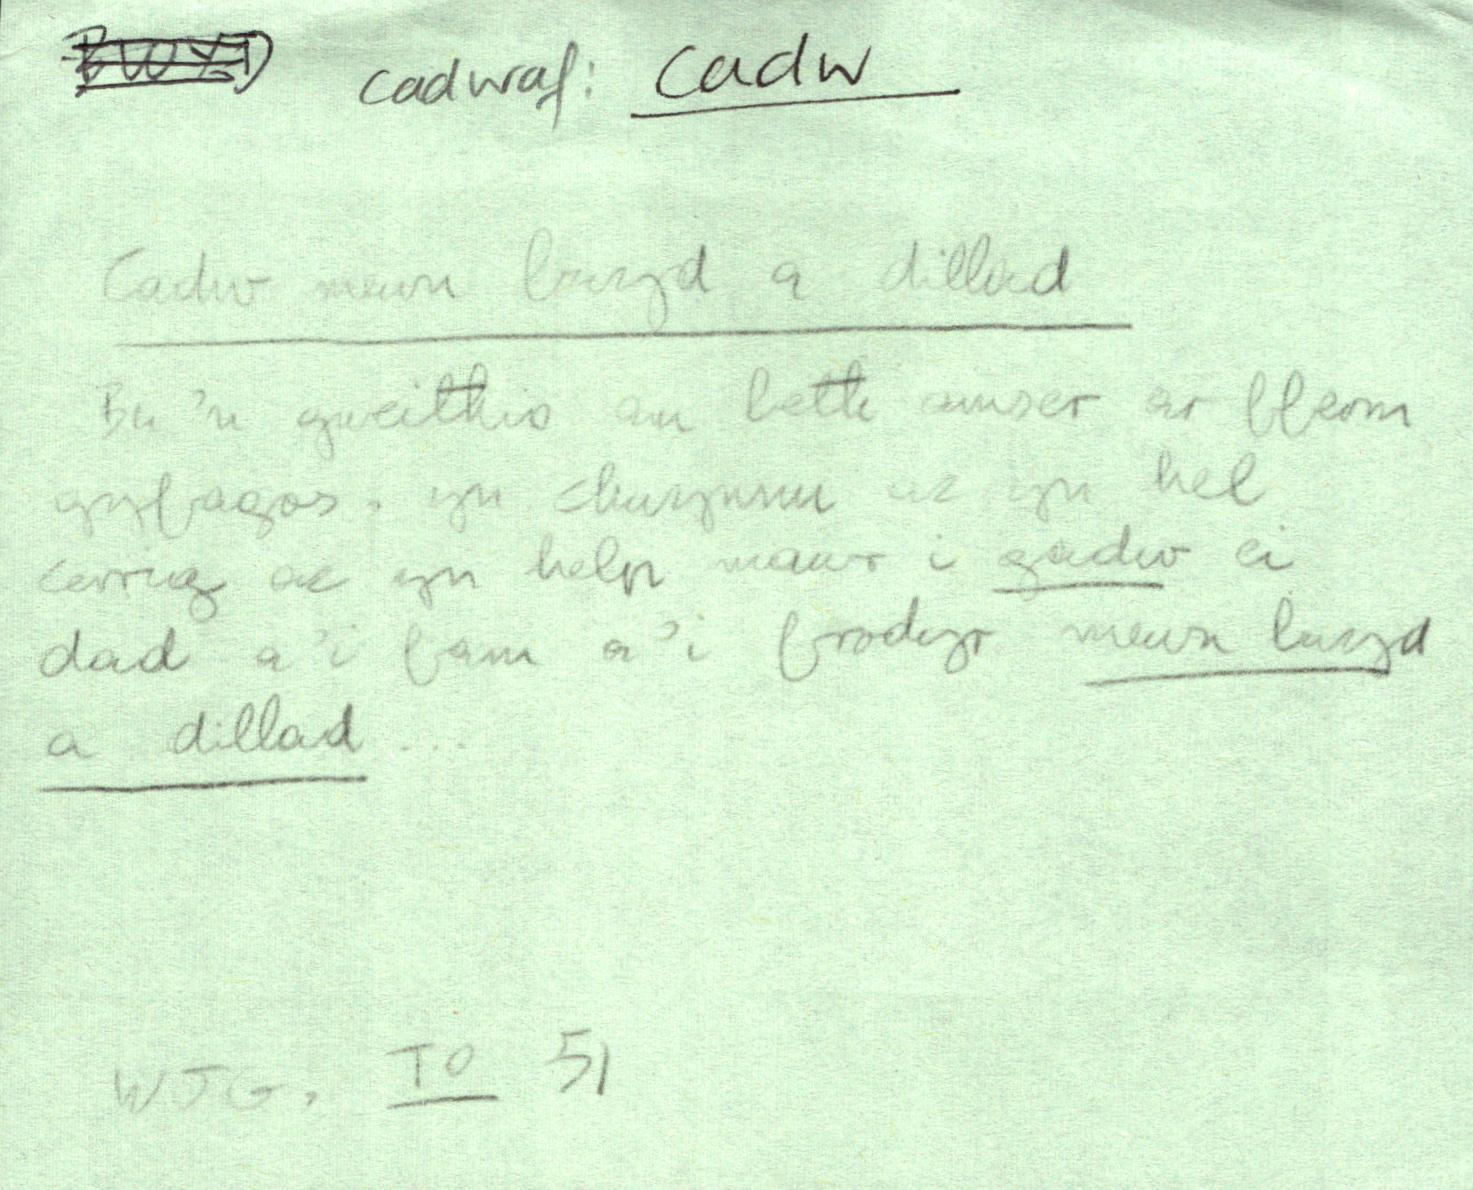 BWYD cadwaf: cadw
Cadw mewn bwyd a dillad
Bu'n gweithio am beth amser ar fferm
gyfagos, yn chwynnu ac yn hel
cerrig ac yn help mawr i gadw ei
dad a'i fam a'i frodyr mewn bwyd
a dillad ...
WJG, TO 51